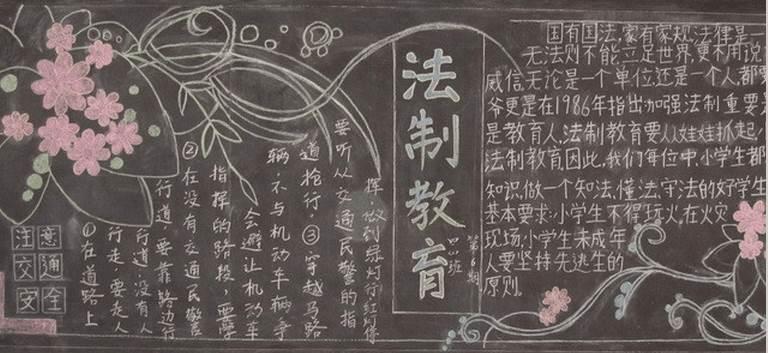 注意
交通
安全
①在道路上
行走,要走人
行道,没有人
行道,要靠路边行
②在没有交通民警
指挥的路段,要学
会避让机动车
辆,不与机动车辆争
道抢行,③穿越马路
要听从交通民警的指
挥,做到绿灯行红灯停
法制教育
班
国有国法,家有家规,法律是一
无法则不能立足世界,更不用说
威信,无论是一个单位还是一个人,都要
爷更是在1986年指出:加强法制重要是
是教育人,法制教育要从娃娃抓起,
法制教育,因此,我们每位中小学生都
知识,做一个知法,懂法,守法的好学生
基本要求:小学生不得玩火,在火灾
现场,小学生未成年
人要坚持先逃生的
原则。